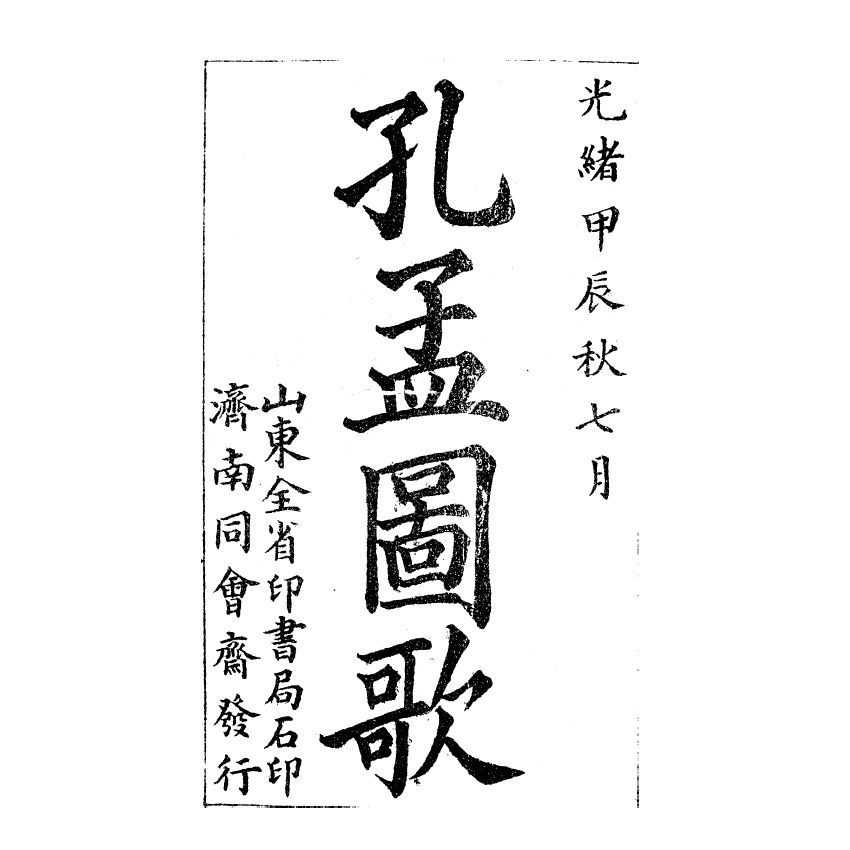 光緒甲辰秋七月
孔孟圖歌
山東全省印書局石印
濟南同會齋發行